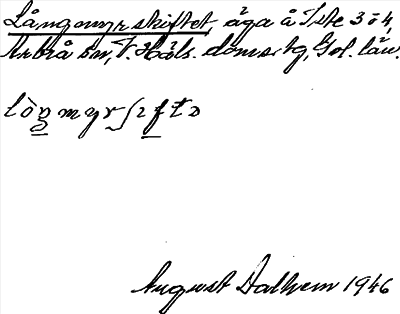 Långmyrskiftet, äga å Iste 3 o 4,
Arbrå sn, V. Häls. doms. tg, Gol. län.
lòŋmyrʃıftə
August Dalhem 1946